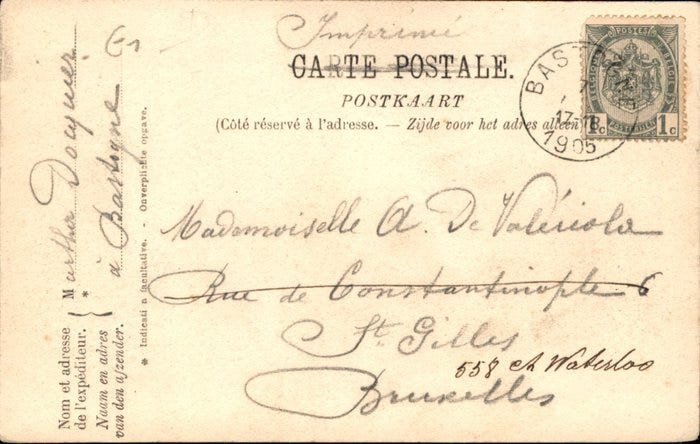 Imprimé
CARTE POSTALE.
POSTKAART
(Côté réservé à l'adresse. — Zijde voor het adres alleen
BAST
17-18
1905
POSTES
POSTERIJEN
1c 1c
Mademoiselle A. De Valériola
Rue de Constantinople 6
St. Gilles
558 ch Waterloo
Bruxelles
Nom et adresse
de l'expéditeur.
Naam en adres
van den afzender.
Marthe Docquier
à Bastogne
* Indicati n facultative. - Onverplichte opgave.